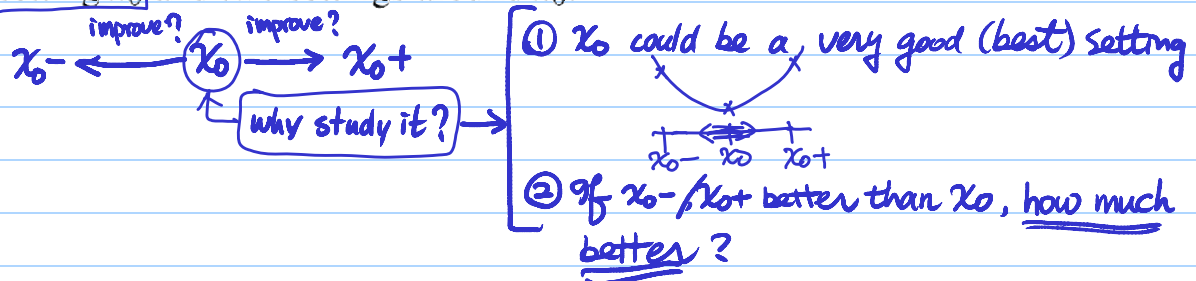 improve? improve?
x₀- ← x₀ → x₀+
why study it? →
① x₀ could be a very good (best) setting
x₀- x₀ x₀+
② If x₀-/x₀+ better than x₀, how much
better?